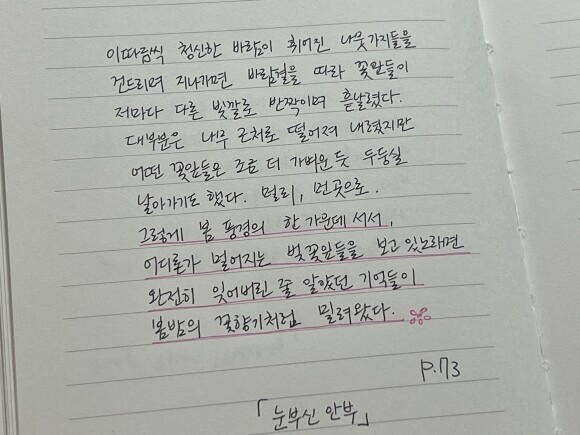 이따금씩 청신한 바람이 휘어진 나뭇가지들을
건드리며 지나가면 바람결을 따라 꽃잎들이
저마다 다른 빛깔로 반짝이며 흩날렸다.
대부분은 나무 근처로 떨어져 내렸지만
어떤 꽃잎들은 조금 더 가벼운 듯 두둥실
날아가기도 했다. 멀리, 먼 곳으로.
그렇게 봄 풍경의 한 가운데 서서,
어디론가 멀어지는 벚꽃잎들을 보고 있노라면
완전히 잊어버린 줄 알았던 기억들이
봄밤의 꽃향기처럼 밀려왔다.
p.73
「눈부신 안부」